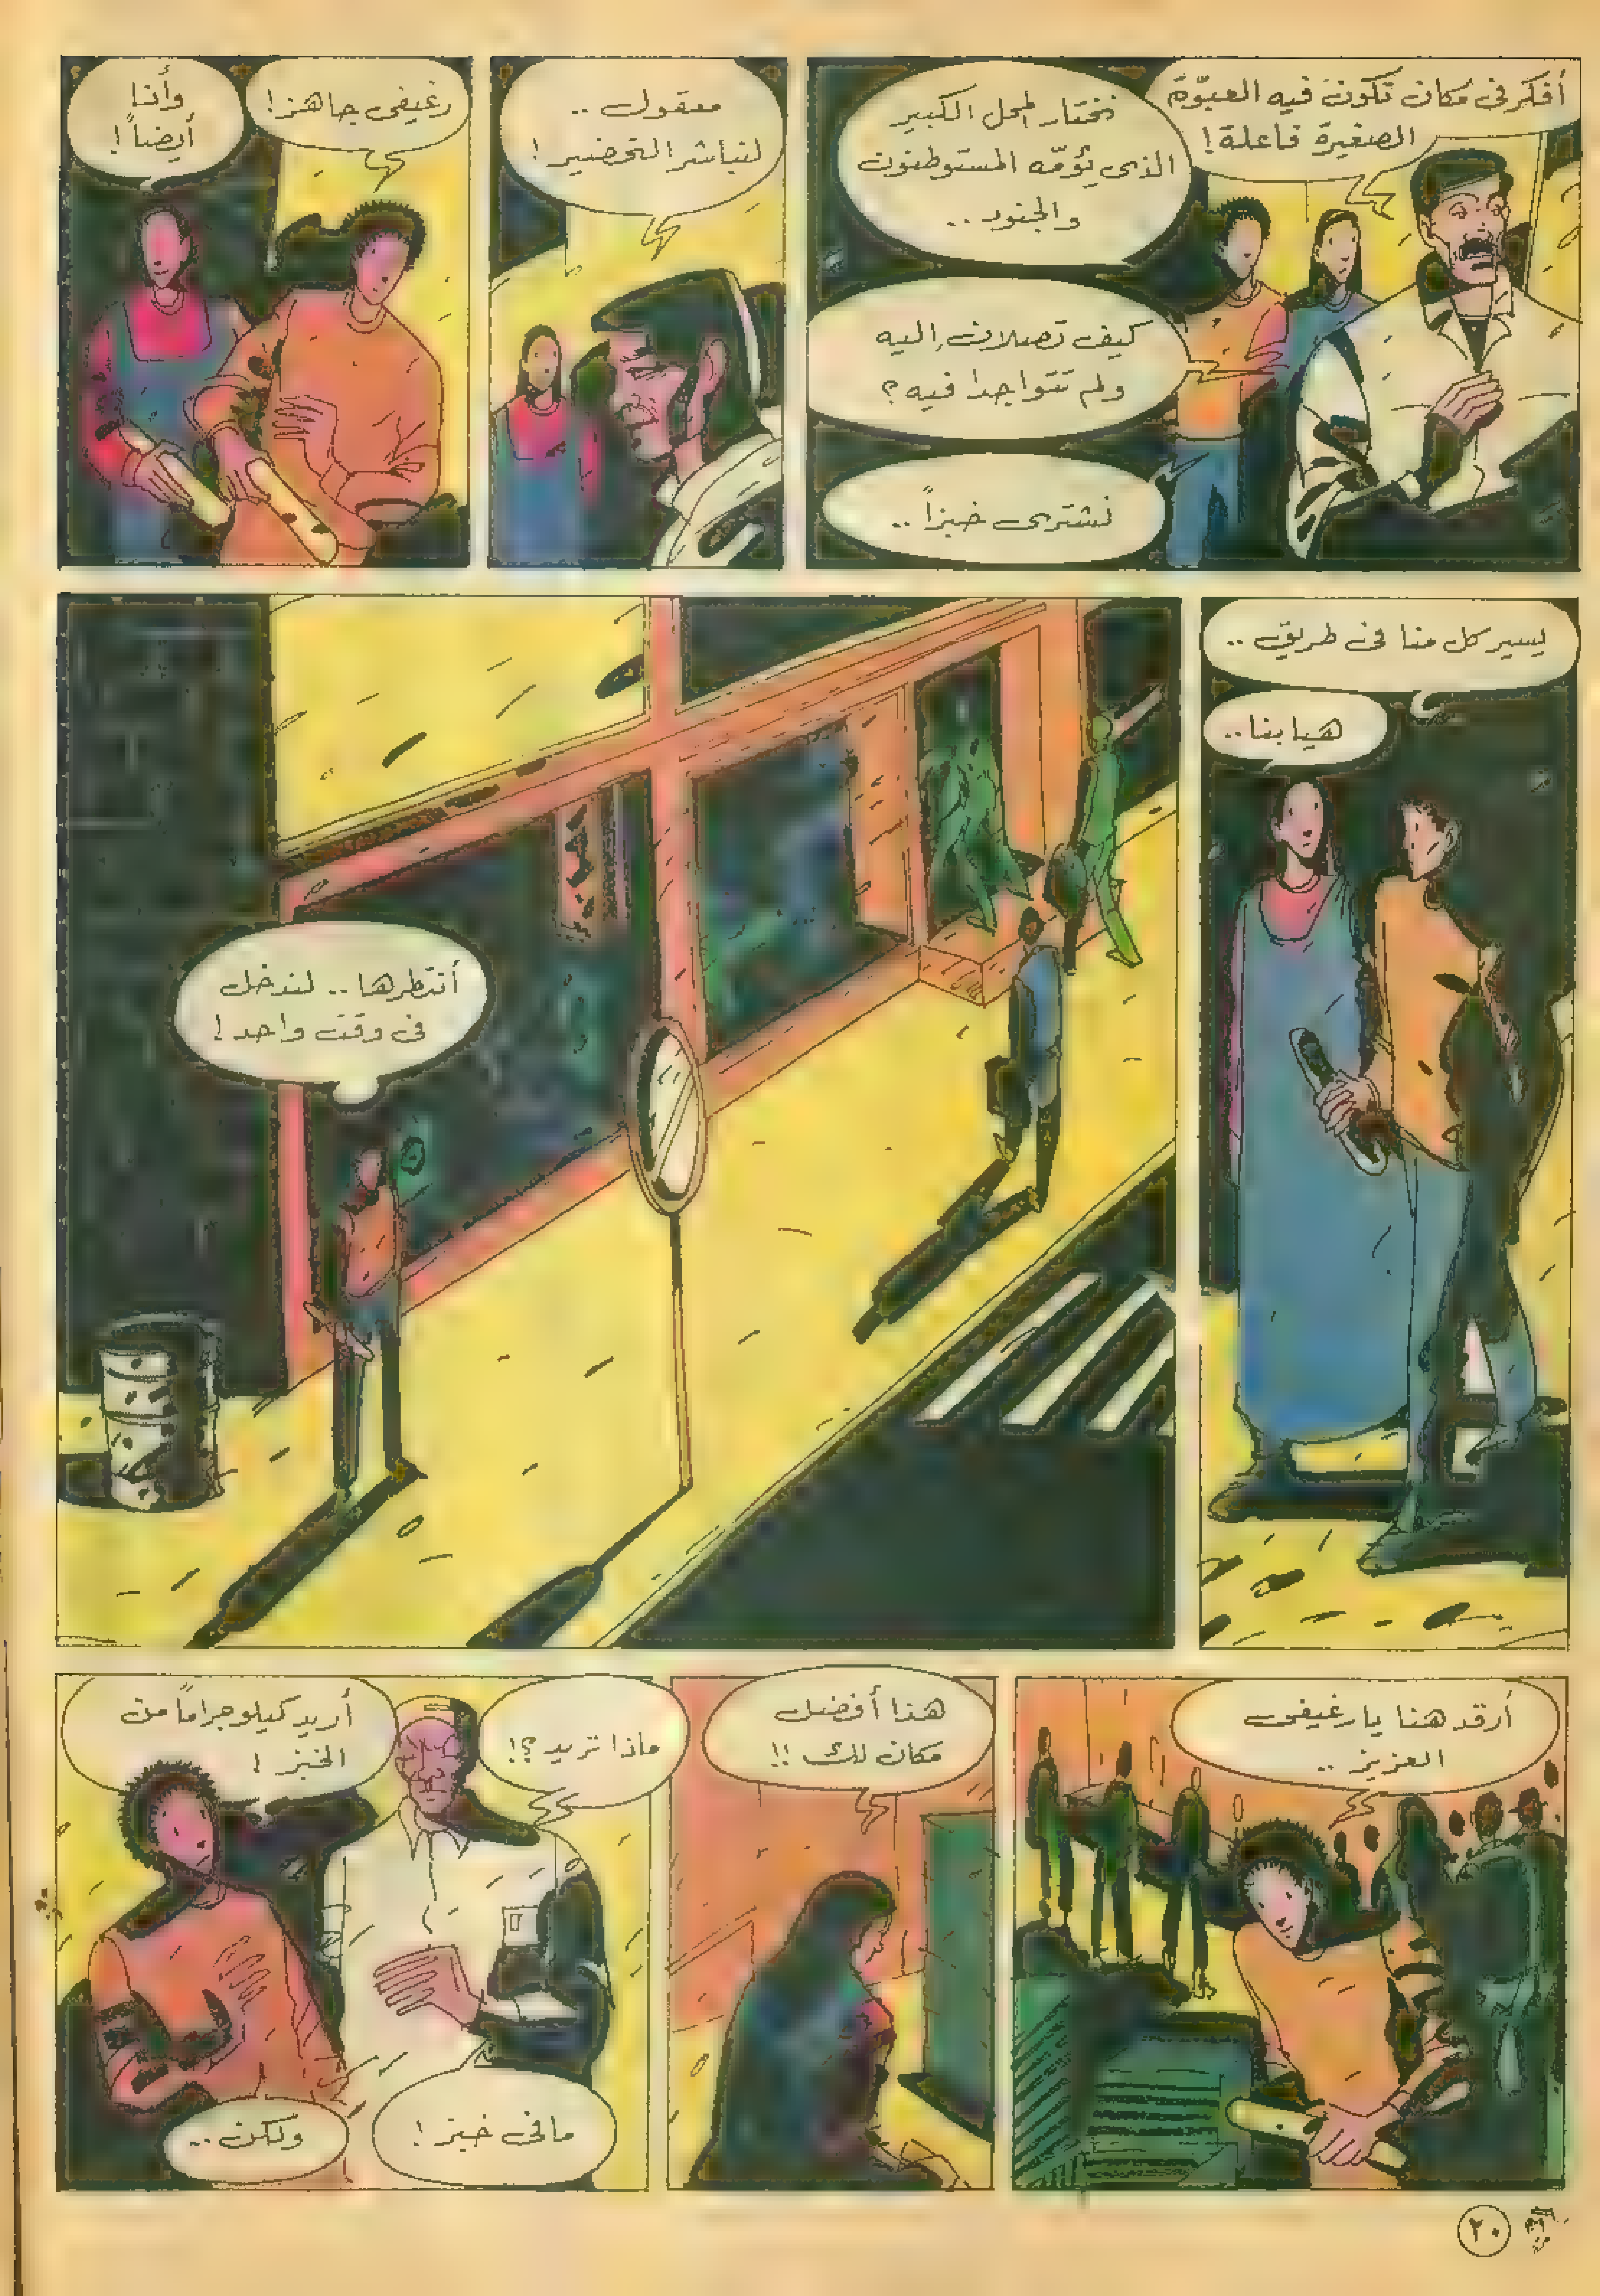 أفكر فى مكان تكون فيه العبوّة
الصغيرة فاعلة!
نختار المحل الكبير
الذى يؤمّه المستوطنون
والجنود..
كيف تصلان إليه
ولم تتواجدا فيه؟
نشترى خبزاً..
معقول..
لنباشر التحضير!
رغيفى جاهز!
وأنا
أيضاً!
يسير كل منا فى طريق..
هيا بنا..
أنتظرها.. لندخل
فى وقت واحد!
أرقد هنا يا رغيفى
العزيز..
هذا أفضل
مكان لك!!
ماذا تريد؟!
أريد كيلوجراماً من
الخبز!
مافى خبز!
ولكن..
٢٠